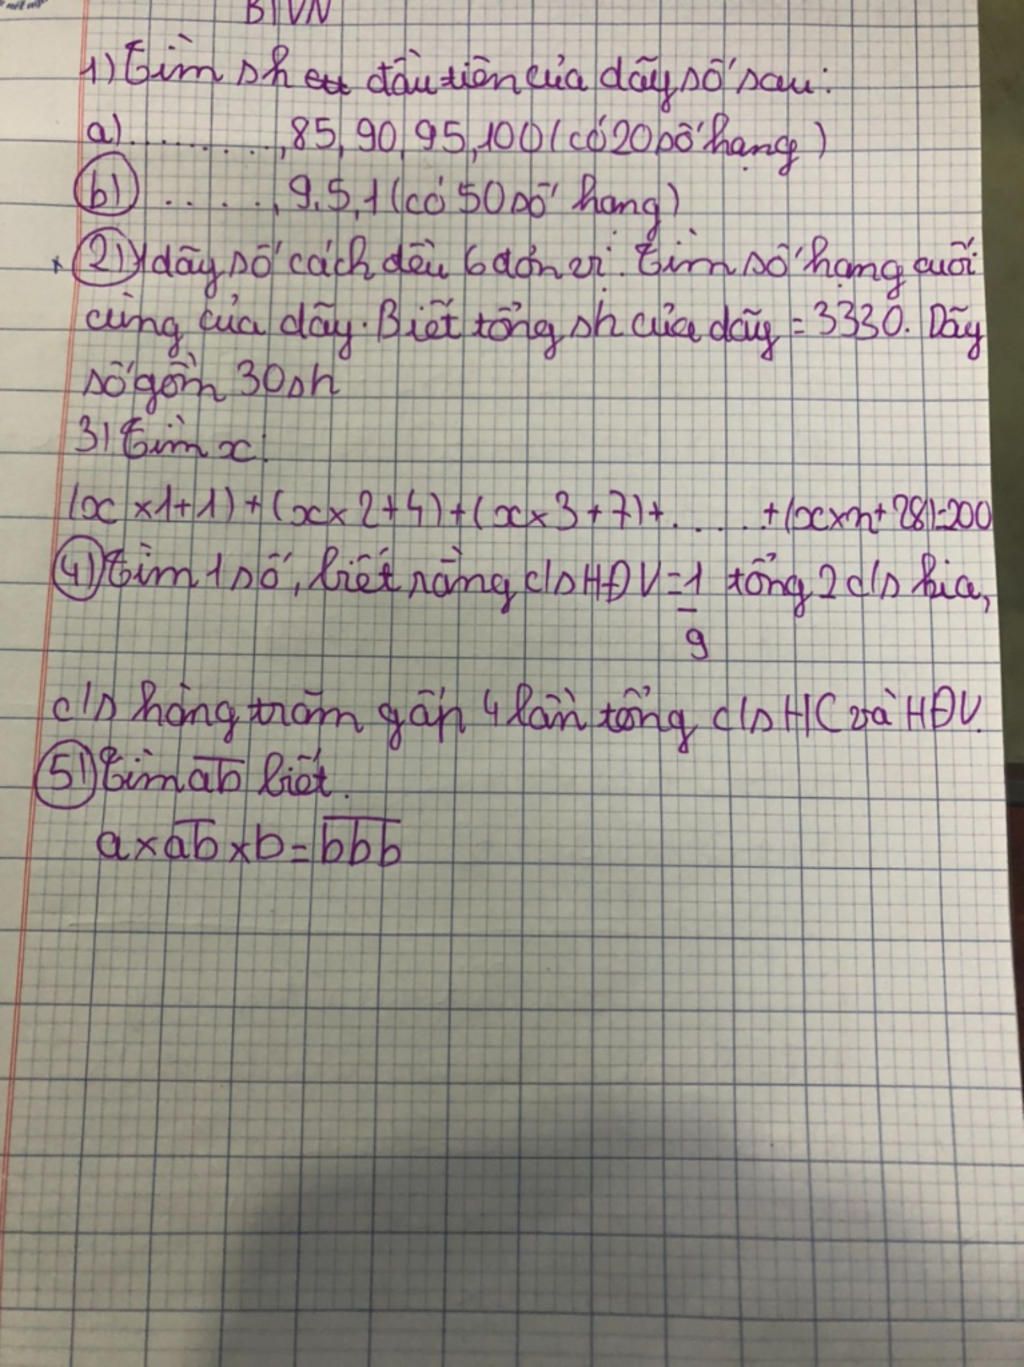 BTVN
1) Tìm sh đầu tiên của dãy số sau:
a)..........,85, 90, 95, 100 (có 20 số hạng)
b) ......, 9, 5, 1 (có 50 số hạng)
* 2) 1 dãy số cách đều 6 đơn vị. Tìm số hạng cuối
cùng của dãy. Biết tổng sh của dãy = 3330. Dãy
số gồm 30 sh
3) Tìm x:
(x × 1 + 1) + (x × 2 + 4) + (x × 3 + 7) + ...... + (x × n + 28) = 200
4) Tìm 1 số, biết rằng c/s HĐV = 1/9 tổng 2 c/s kia,
c/s hàng trăm gấp 4 lần tổng c/s HC và HĐV.
5) Tìm a̅b̅ biết.
a × a̅b̅ × b = b̅b̅b̅